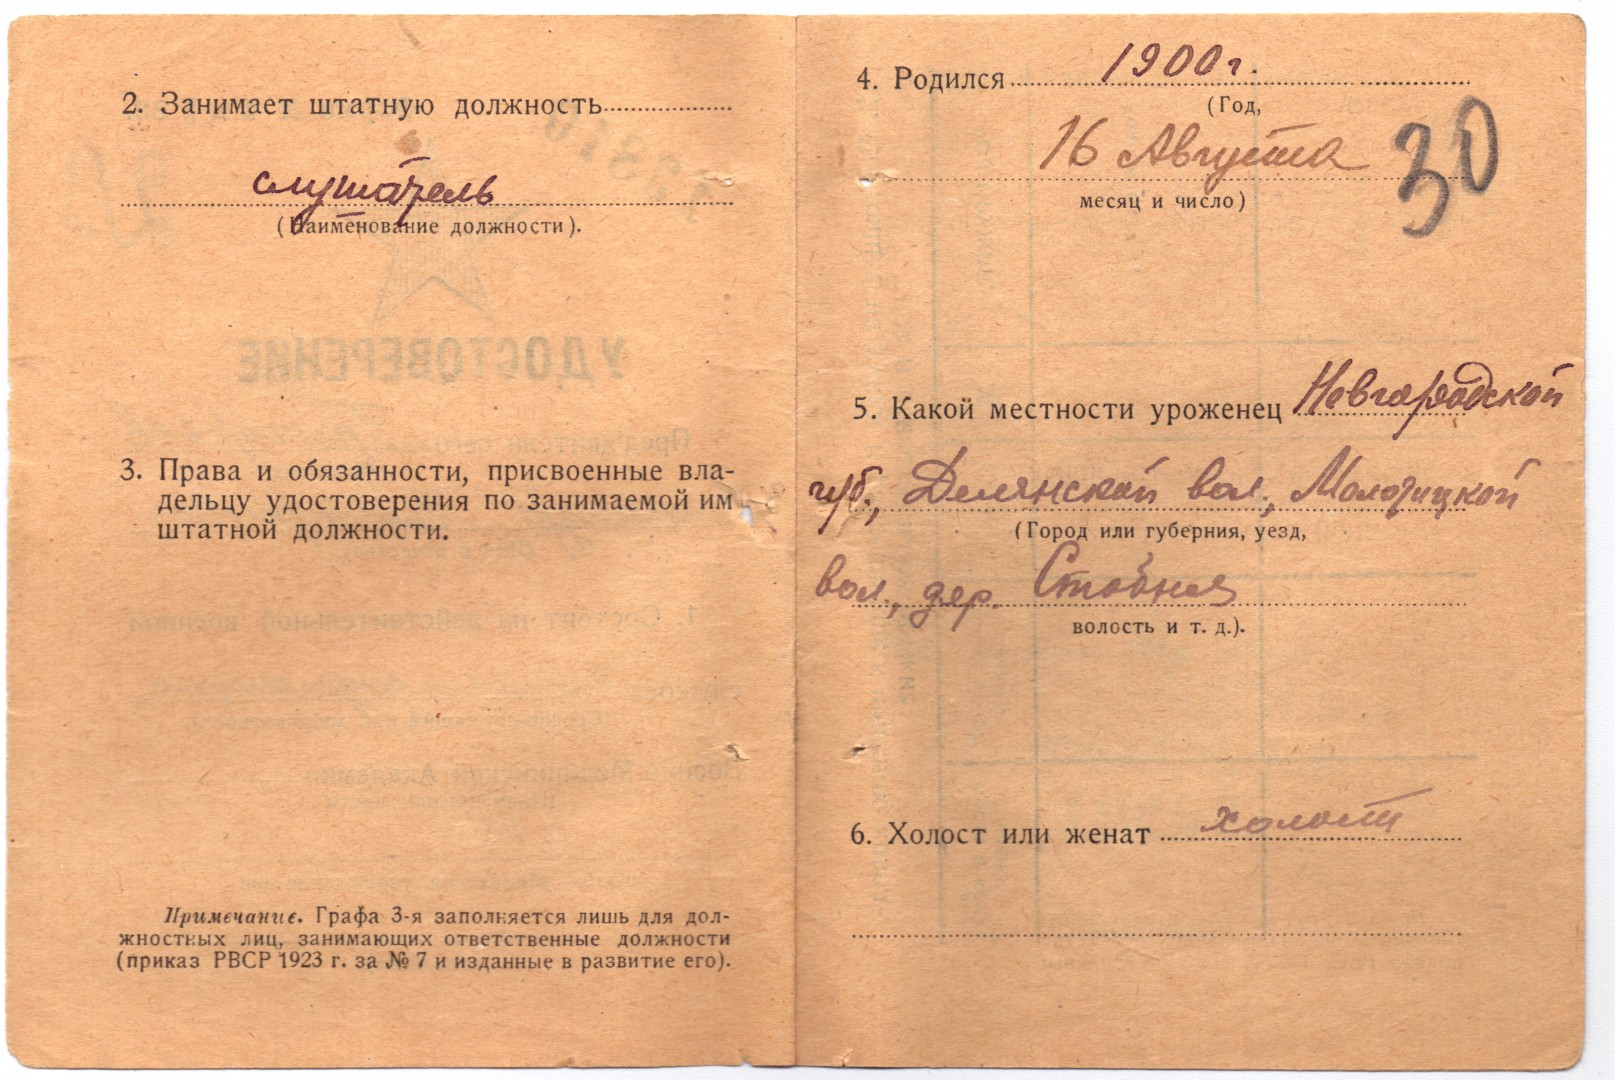 2. Занимает штатную должность
слушатель
(Наименование должности).
УДОСТОВЕРЕНИЕ
3. Права и обязанности, присвоенные вла-
дельцу удостоверения по занимаемой им
штатной должности.
Примечание. Графа 3-я заполняется лишь для дол-
жностных лиц, занимающих ответственные должности
(приказ РВСР 1923 г. за № 7 и изданные в развитие его).
4. Родился 1900 г.
(Год,
16 Августа
30
месяц и число)
5. Какой местности уроженец Новгородской
губ., вол.,
(Город или губерния, уезд,
вол., дер.
волость и т. д.).
6. Холост или женат холост